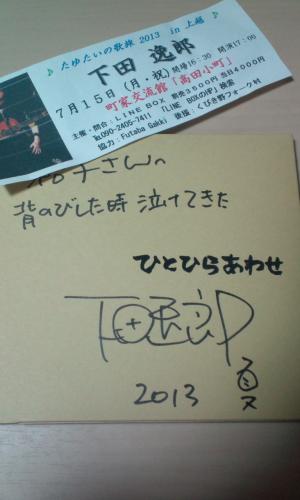 たゆたいの歌旅 2013 in 上越
下田 逸郎
7月15日(月・祝)開場16:30 開演17:00
町家交流館「高田小町」
主催・問合：LINE BOX 前売3500円 当日4000円
☎090-2405-7411 「LINE BOXのHP」検索
協力：Futaba Gakki 後援：くびき野フォーク村
背のびした時 泣けてきた
ひとひらあわせ
下田逸郎
2013 夏